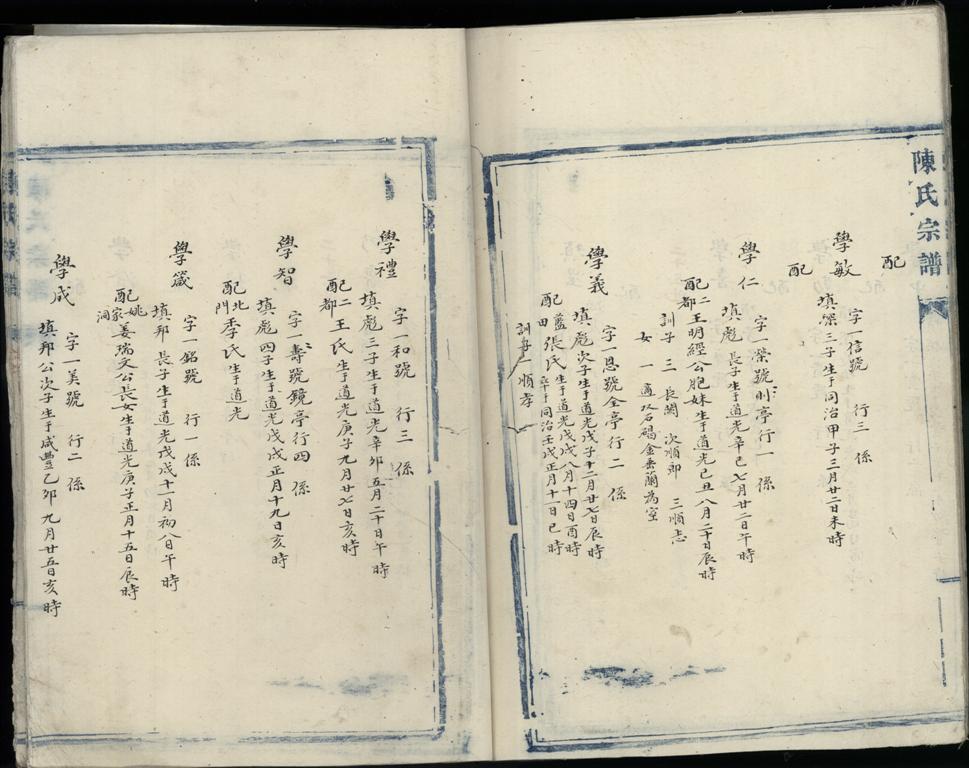 陳氏宗譜
配
學敏
字一信號 行三 係
填爃三子生于同治甲子三月廿二日未時
配
學仁
字一榮號則亭行一 係
填彪長子生于道光辛巳七月廿二日午時
配二都王明經公胞妹生于道光己丑八月二十日辰時
訓子三 長關 次順郎 三順志
女一 適双石碣金垂蘭為室
學義
字一恩號全亭行二 係
填彪次子生于道光戊子十二月廿七日辰時
配藍田張氏生于道光戊戌八月十四日酉時 卒于同治壬戌正月十一日巳時
訓子一順孝
學禮
字一和號 行三 係
填彪三子生于道光辛卯五月二十日午時
配二都王氏生于道光庚子九月廿七日亥時
學智
字一壽號鏡亭行四 係
填彪四子生于道光戊戌正月十九日亥時
配北門季氏生于道光
學箴
字一銘號 行一 係
填邦長子生于道光戊戌十一月初八日午時
配姚家洞姜瑞文公長女生于道光庚子正月十五日辰時
學成
字一美號 行二 係
填邦公次子生于咸豐乙卯九月廿五日亥時